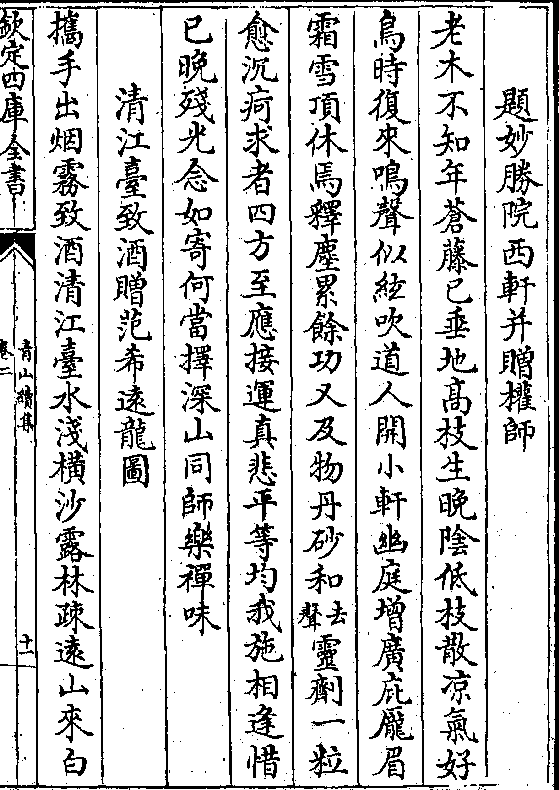 題妙勝院西軒并贈權師
老木不知年蒼藤已垂地髙枝生晚陰低枝散凉氣好
鳥時復來鳴聲似絃吹道人開小軒幽庭增廣庇龎眉
霜雪頂休焉釋塵累餘功又及物丹砂和去聲靈劑一粒
愈沉疴求者四方至應接運真悲平等均我施相逢惜
已晚殘光念如寄何當擇深山同師樂禪味
清江臺致酒贈范希逺龍圖
攜手出烟霧致酒清江臺水淺橫沙露林疎逺山來白
欽定四庫全書
青山續集
卷二
十一